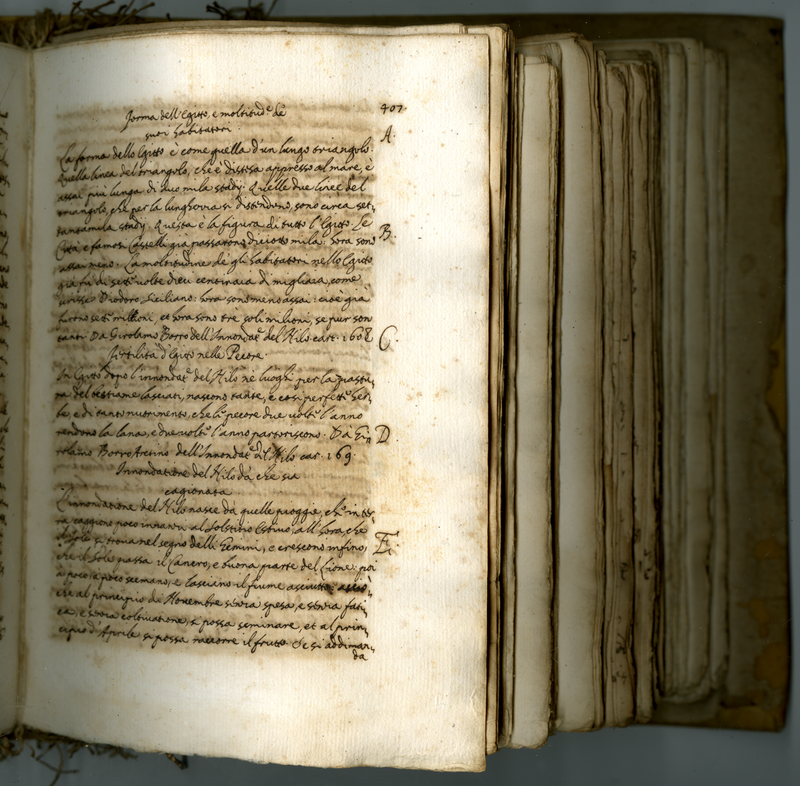 407
forma dell'Egitto, e moltitud.e de
suoi habitatori.
A.
La forma dello Egitto è come quella d'un lungo triangolo.
Quella linea del triangolo, che è distesa appresso al mare, è
assai più lunga di duo mila stadij. Quelle due linee del
triangolo, che per la lunghezza si distendeno, sono circa set,
tantamila stadij. Questa è la figura di tutto l'Egitto. Le
B.
Città, e famosi Castelli già passarono diciotto mila: hora sono
assai meno. La moltitudine de gli habitatori nello Egitto
già fu di sette volte dieci centinaia di migliaia, come
scrisse Diodoro Siciliano: hora sono meno assai: cioè già
furono sette millioni, et hora sono tre soli milioni, se pur son
C.
tanti. Da Girolamo Borro dell'Innondat.e del Nilo cart. 160
fertilità d'Egitto nelle Pecore.
In Egitto dopo l'innondat.e del Nilo ne luoghi per la pastu,
ra del bestiame lasciati, nascono tante, e così perfette her,
be, e di tanto nutrimento, che le pecore due volte l'anno
D.
rendono la lana, e due volte l'anno partoriscono. Da Gi,
rolamo Borro Aretino dell'Innondat.e del Nilo car. 169.
Innondatione del Nilo da che sia
cagionata
L'innondatione del Nilo nasce da quelle pioggie, che in ter,
ra caggiono poco innanzi al Solstitio Estivo, all'hora che
E.
il Sole si trova nel segno delli Gemini, e crescono infino,
che il Sole passa il Cancro, e buona parte del Lione: poi
a poco, a poco scemano, e lasciano il fiume asciutto:
che al principio di Novembre senza spesa, e senza fati,
ca, e senza coltivatione, si possa seminare, et al prin,
cipio d'Aprile si possa raccorre il frutto. Se si addiman,
da